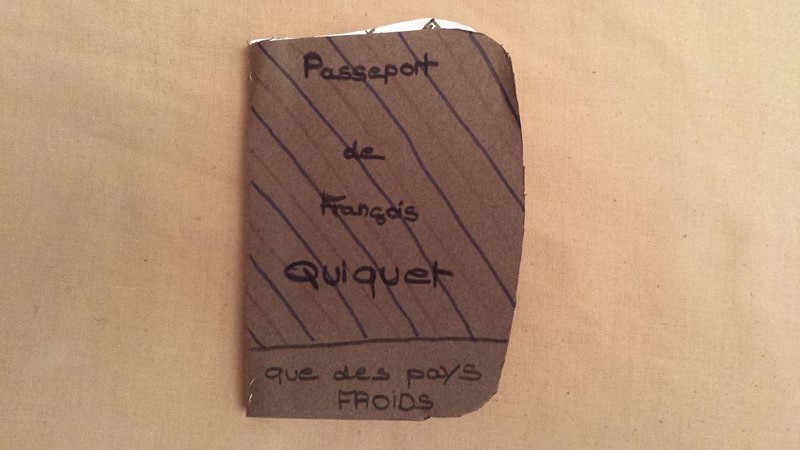 Passeport
de
François
Quiquet
que des pays
FROiDS